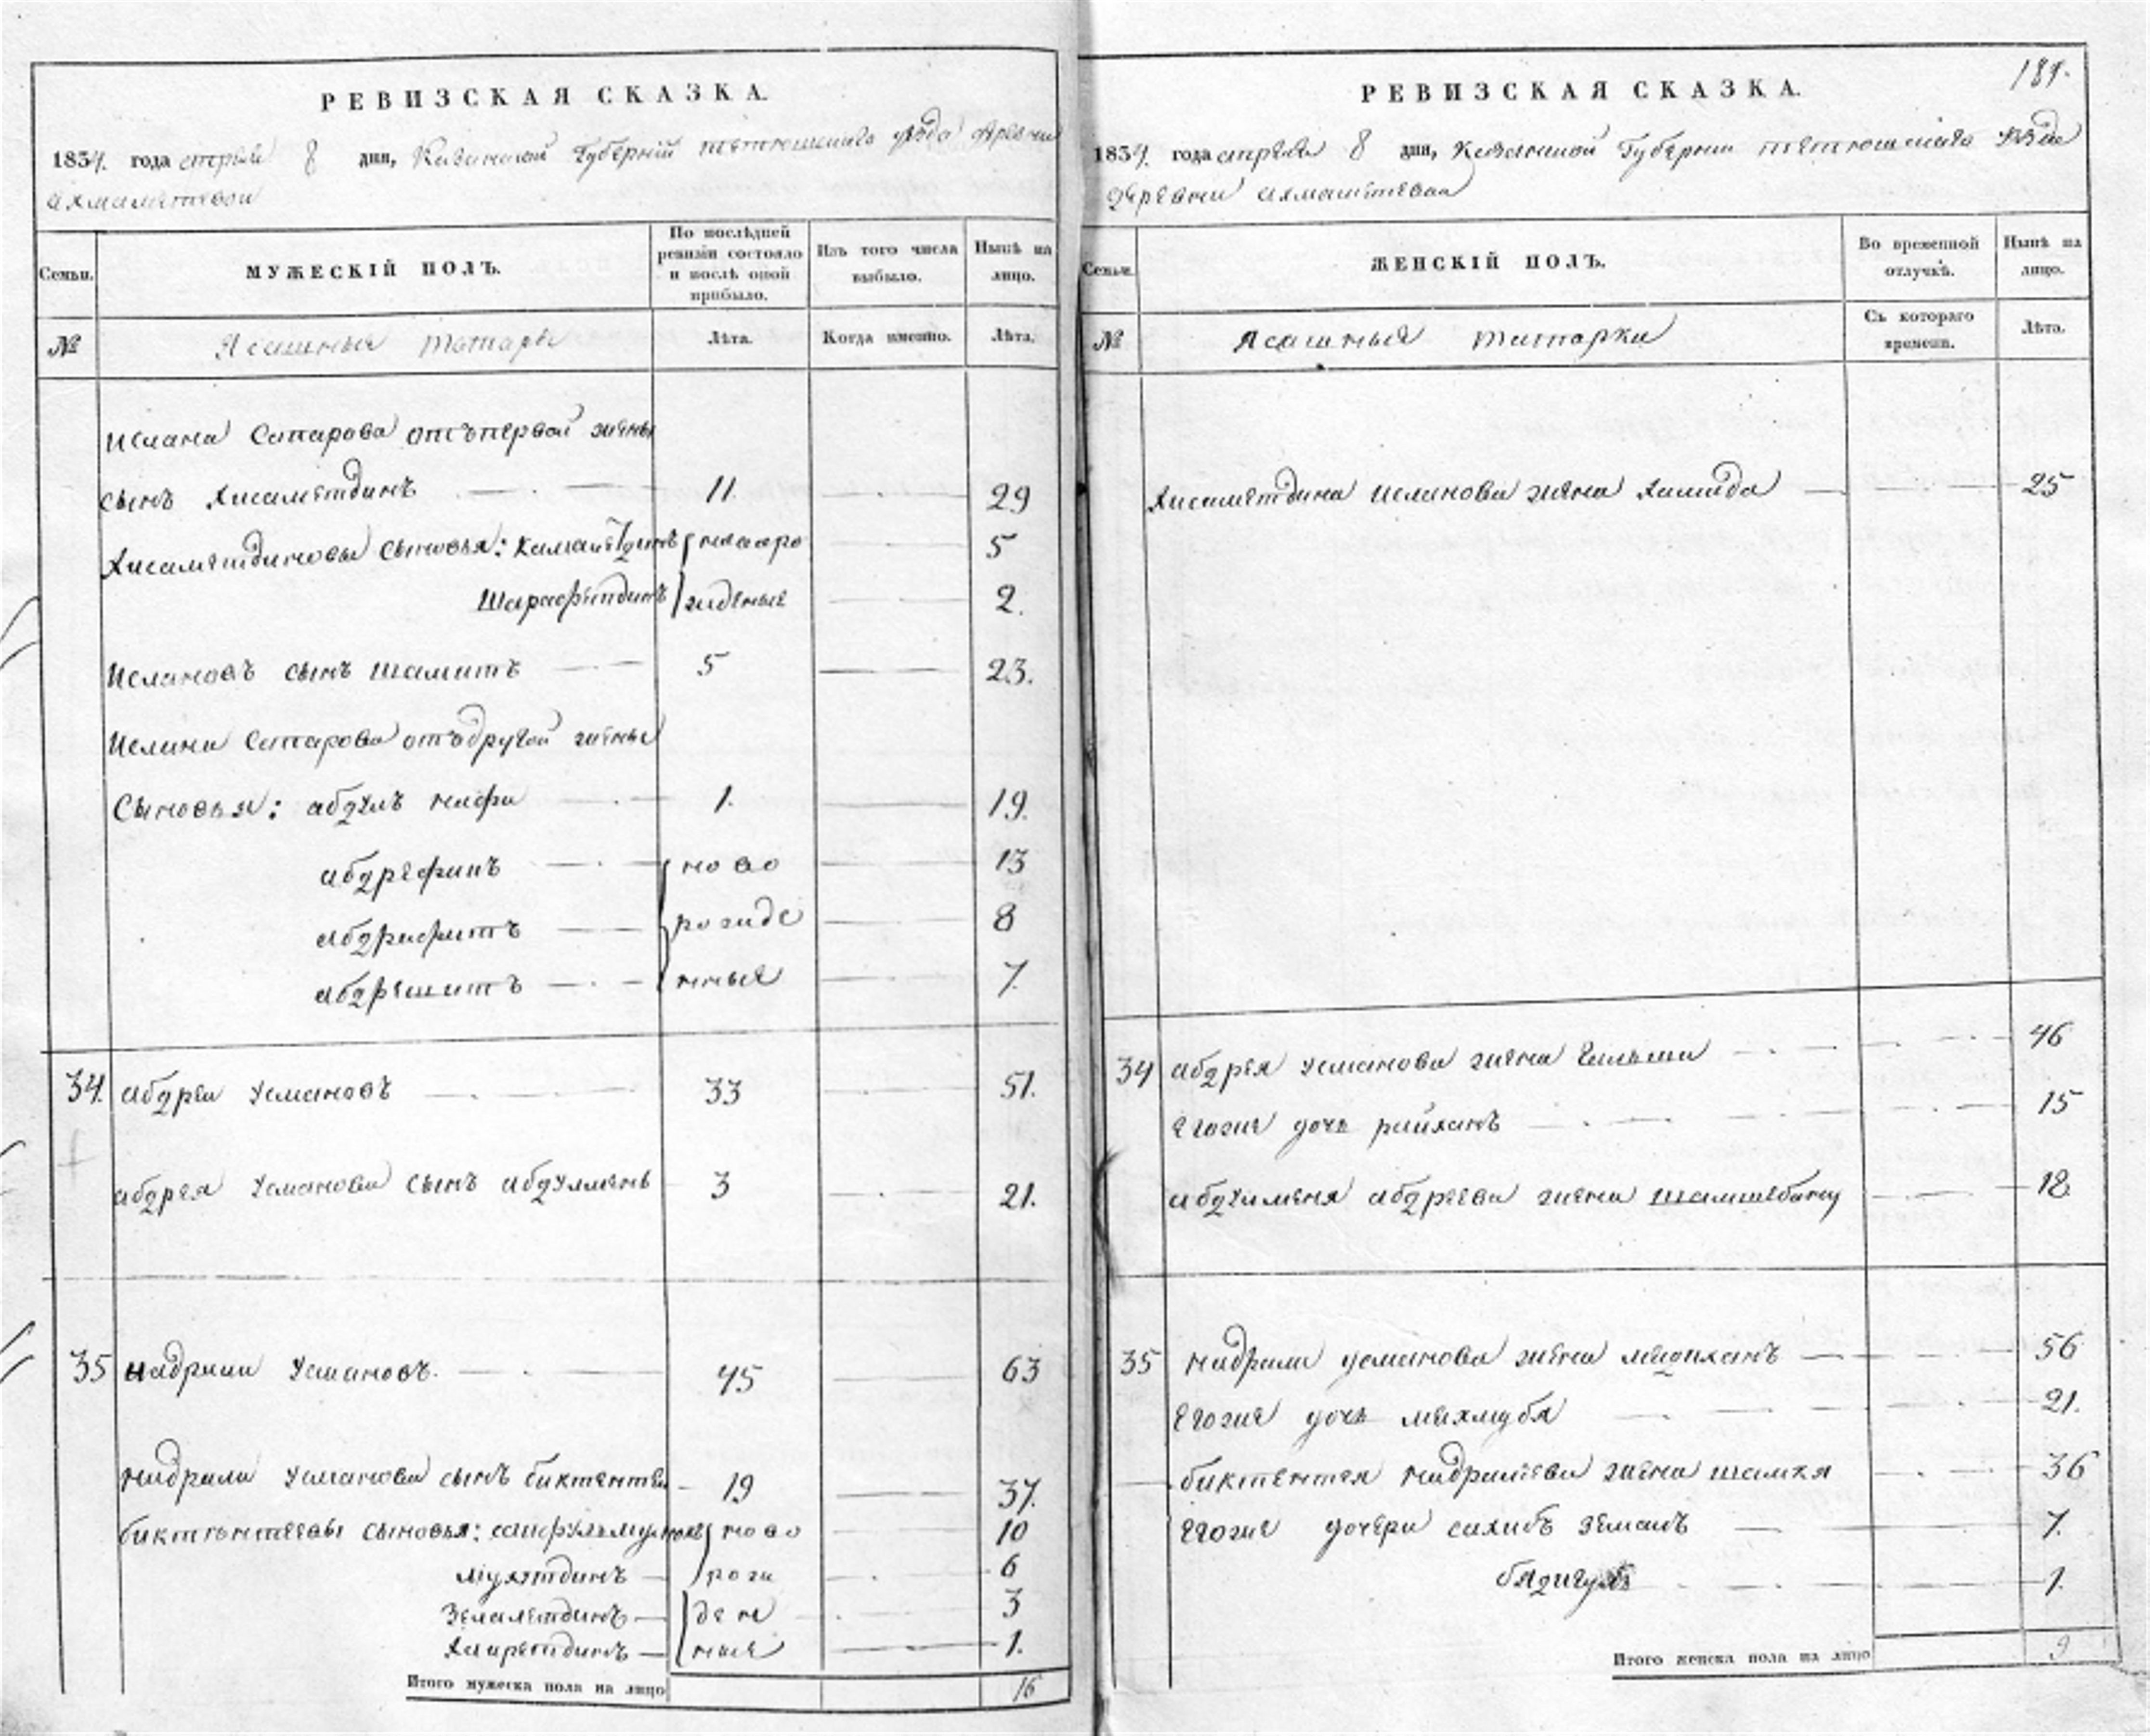 РЕВИЗСКАЯ СКАЗКА.
1834. года апреля 8 дня, Казанской Губернiи тетюшскаго уѣзда деревни
ахмаметевой
Семьи. МУЖЕСКIЙ ПОЛЪ. По послѣдней ревизiи состояло и послѣ оной прибыло. Изъ того числа выбыло. Нынѣ на лицо.
№ Ясашныя татары Лѣта. Когда именно. Лѣта.
Ислана Сатарова отъ первой жены
сынъ Хисаметдинъ 11. 29
Хисаметдиновы сыновья: Камалетдинъ новоро 5
Шарафетдинъ жденные 2.
Ислановъ сынъ шамитъ 5 23.
Ислана Сатарова отъ другой жены
Сыновья: абдулъ нафи 1. 19.
абдрефинъ ново 13
абдрафитъ рожде 8
абдрешитъ нныя 7.
34. абдреи Усмановъ 33 51.
абдрея Усманова сынъ абдулменъ 3 21.
35 надрали Усмановъ. 45 63
надрали Усманова сынъ биктентеи 19 37.
биктентеевы сыновья: сайфульмулюкъ ново 10
мухетдинъ рож 6
Зелялетдинъ ден 3
Хайретдинъ ныя 1.
Итого мужеска пола на лицо 16
181.
РЕВИЗСКАЯ СКАЗКА.
1834. года апреля 8 дня, Казанской Губернии тетюшскаго уѣзда
деревни ахмаметевой
Семьи. ЖЕНСКIЙ ПОЛЪ. Во временной отлучкѣ. Нынѣ на лицо.
№ Ясашныя татарки Съ котораго времени. Лѣта.
Хисаметдина исланова жена Хамида 25
34 абдрея усманова жена 46
егоже дочь райханъ 15
абдулменя абдреева жена шамшебану 18
35 надрали усманова жена 56
егоже дочь махмубя 21.
биктентея надралеева жена шамкя 36
егоже дочери сахибъ земалъ 7.
бядигулъ 1.
Итого женска пола на лицо 9